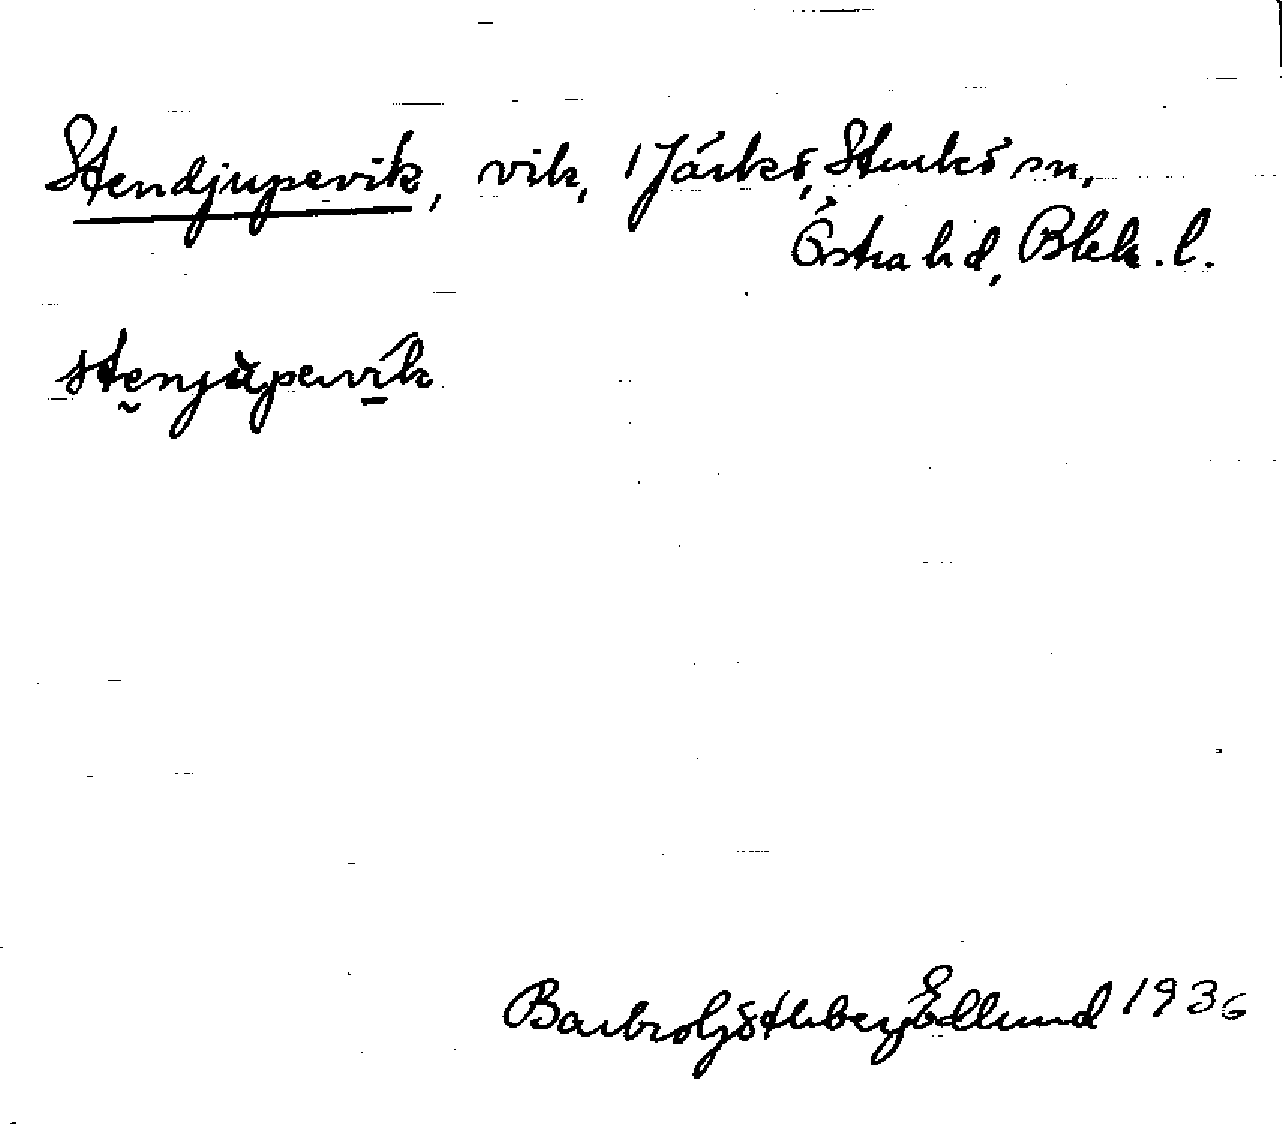 Stendjupevik, vik, i Järkö, Sturkö sn,
Östra hd, Blek. l.
stenjupevik
Barbro Götleberg Edlund 1936